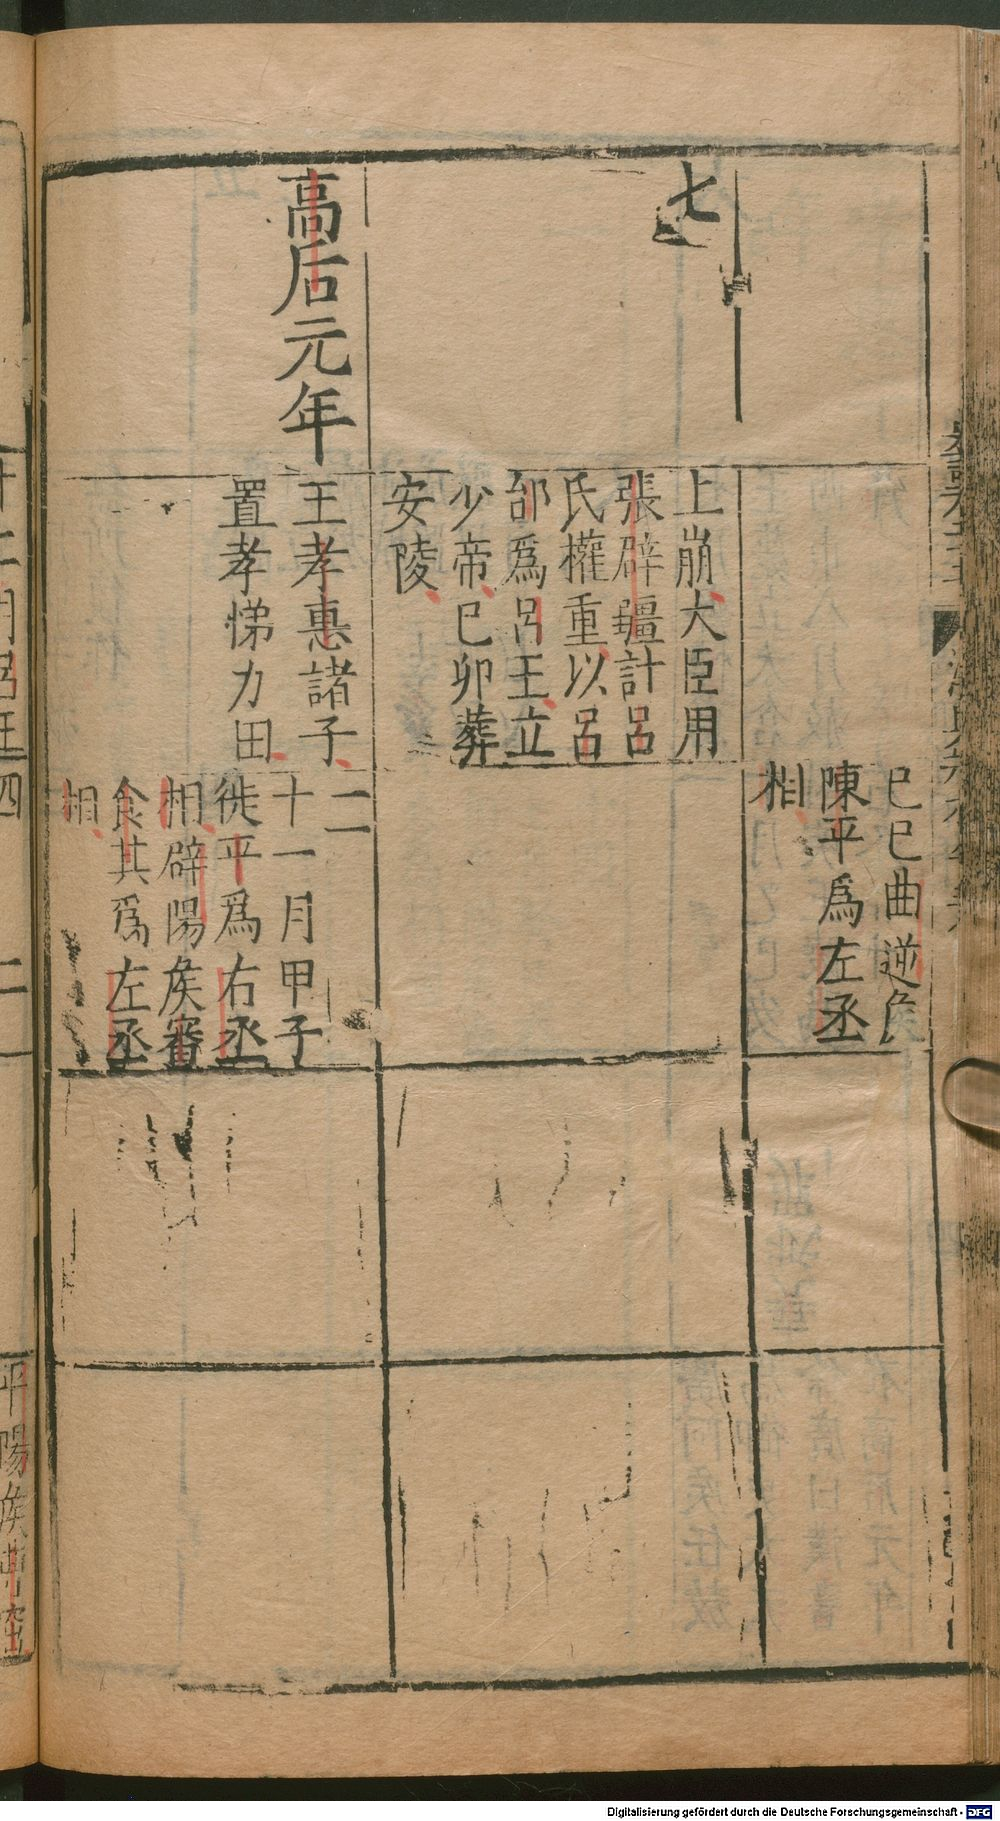 已巳曲逆侯
陳平爲左丞
相
七
上崩大臣用
張辟疆計呂
氏權重以呂
邰爲呂王立
少帝已卯葬
安陵
高后元年
王孝惠諸子
置孝悌力田
二
十一月甲子
徙平爲右丞
相辟陽矦審
食其爲左丞
相
平陽矦曹窋
Digitalisierung gefördert durch die Deutsche Forschungsgemeinschaft - DFG